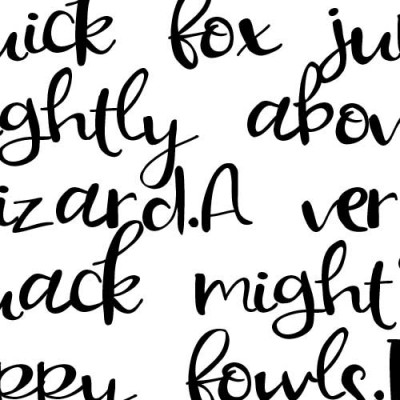 uick fox ju
ightly abov
izard.A ver
uack might
ppy fowls.